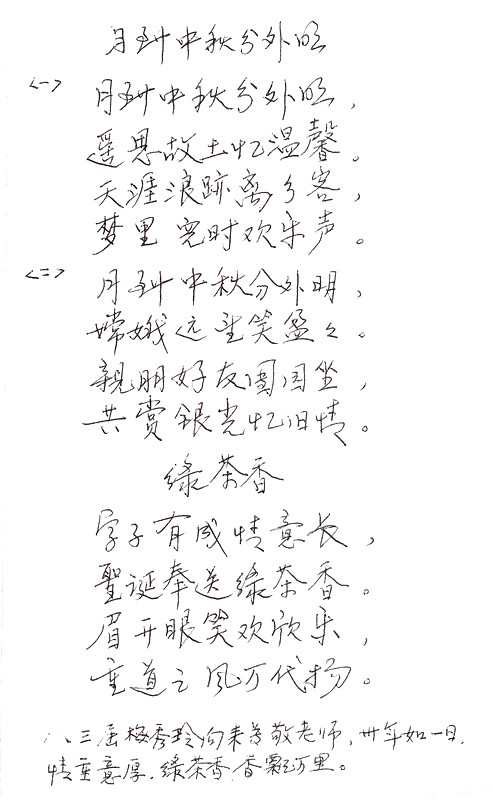 月到中秋分外明
<一>
月到中秋分外明，
遥思故土忆温馨。
天涯浪跡离乡客，
梦里 儿时欢乐声。
<二>
月到中秋分外明，
嫦娥远望笑盈々。
親朋好友團团坐，
共赏銀光忆旧情。
綠茶香
学子有成情意长，
聖诞奉送綠茶香。
眉开眼笑欢欣乐，
重道之风万代扬。
八三届梅秀玲向来尊敬老师，卅年如一日，
情重意厚．綠茶香，香飄万里。